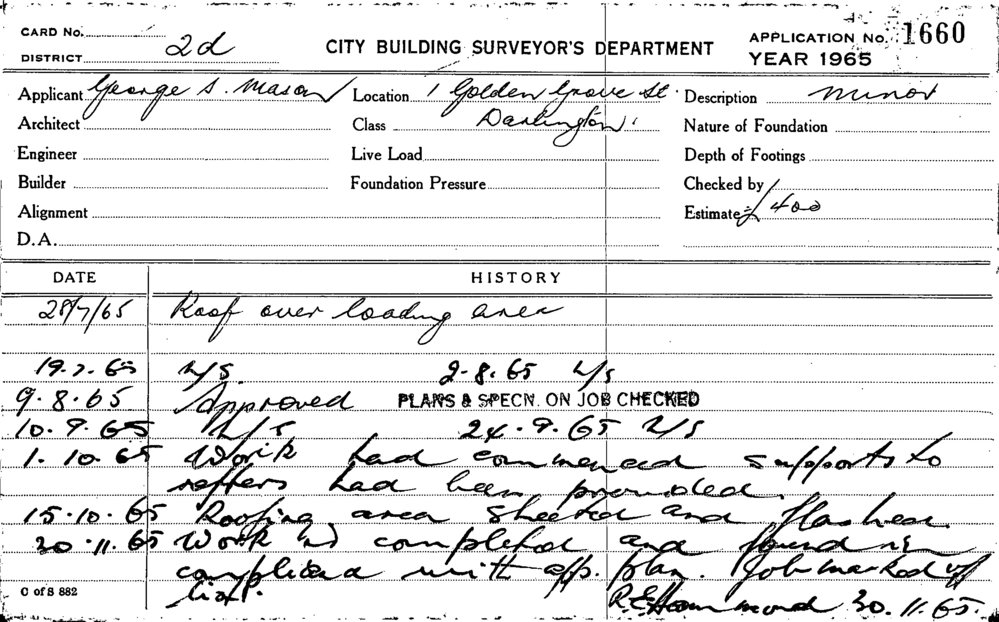 CARD No.
DISTRICT 2d
CITY BUILDING SURVEYOR'S DEPARTMENT
APPLICATION No. 1660
YEAR 1965
Applicant George S. Mason Location 1 Golden Grove St. Description minor
Architect Class Darlington. Nature of Foundation
Engineer Live Load Depth of Footings
Builder Foundation Pressure Checked by
Alignment Estimate £ 400
D.A.
DATE HISTORY
28/7/65 Roof over loading area
19.7.65 N/S. 2.8.65 N/S
9.8.65 Approved PLANS & SPECN. ON JOB CHECKED
10.9.65 N/S 24.9.65 N/S
1.10.65 Work had commenced supports to
rafters had been provided.
15.10.65 Roofing area sheeted and flashed
30.11.65 Work is completed and found in
compliance with app. plan. Job marked off
list.
C of S 882
R.E. Hammond 30.11.65.